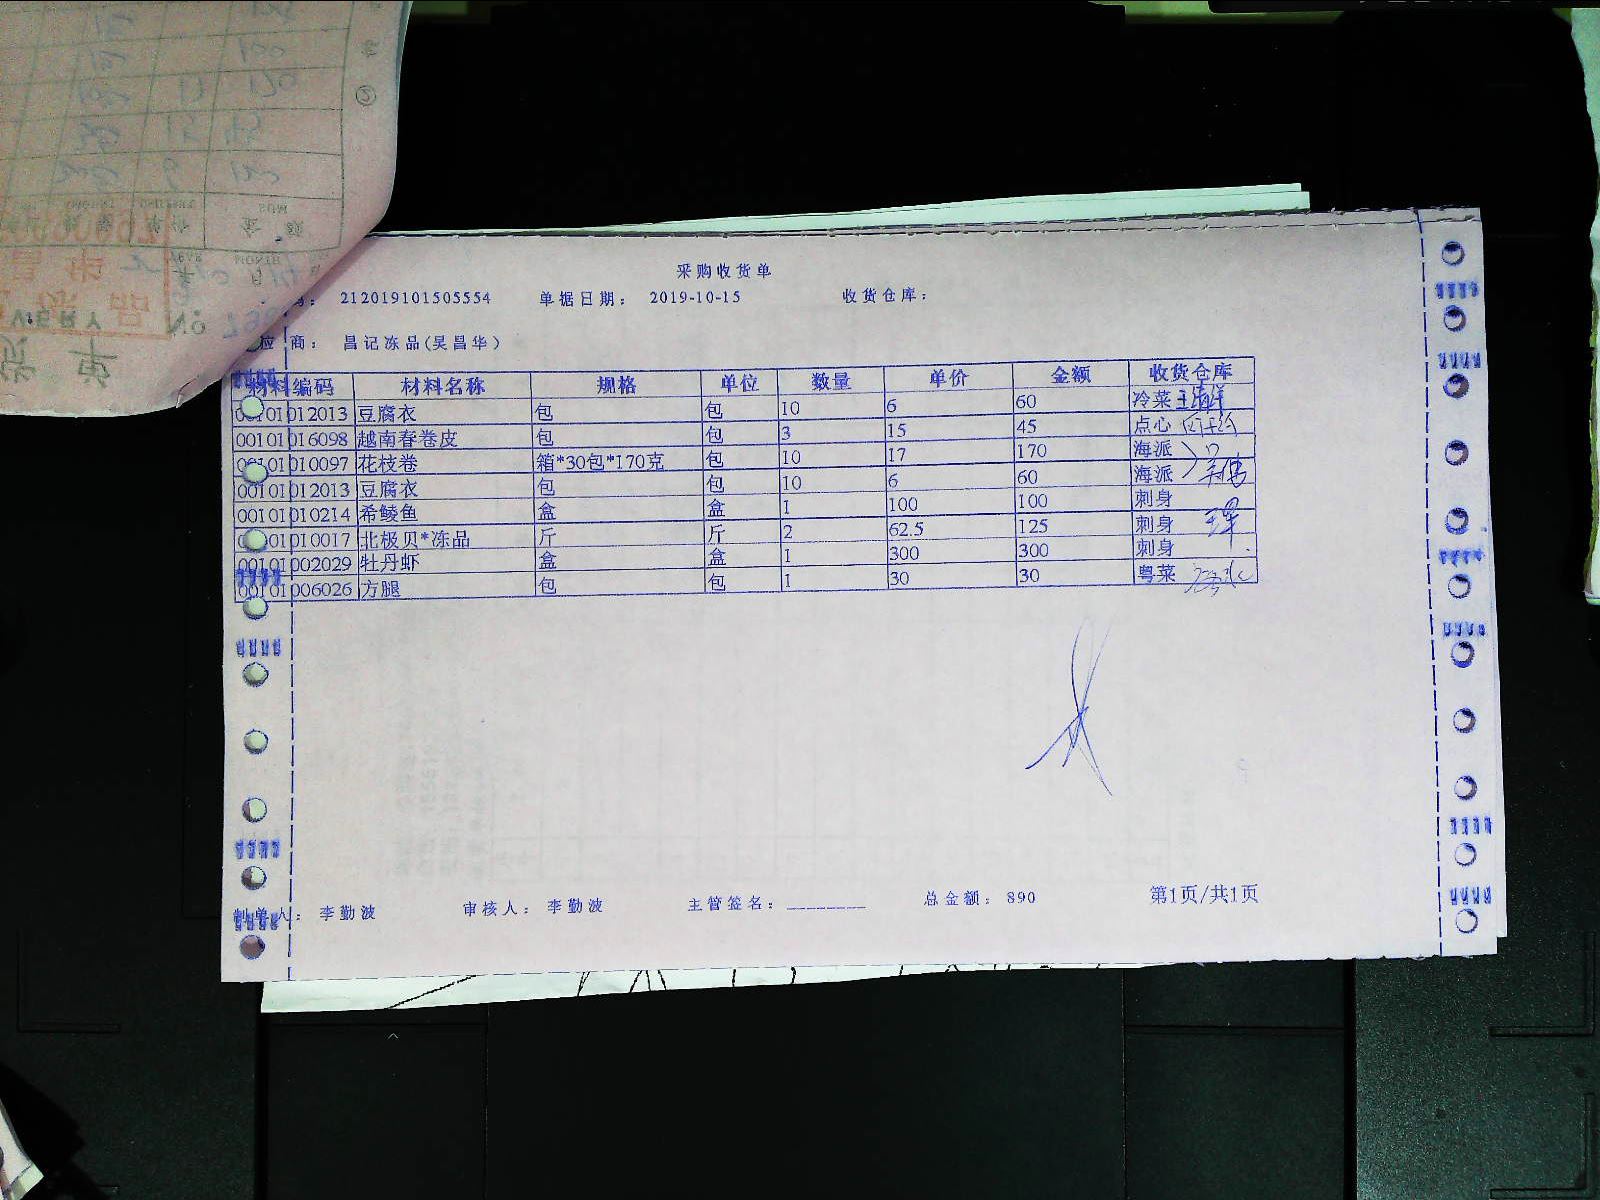 采购收货单
号： 212019101505554 单据日期： 2019-10-15 收货仓库：
应商： 昌记冻品(吴昌华)
材料编码 材料名称 规格 单位 数量 单价 金额 收货仓库
00101012013 豆腐衣 包 包 10 6 60 冷菜
00101016098 越南春卷皮 包 包 3 15 45 点心
00101010097 花枝卷 箱*30包*170克 包 10 17 170 海派
00101012013 豆腐衣 包 包 10 6 60 海派
00101010214 希鲮鱼 盒 盒 1 100 100 刺身
00101010017 北极贝*冻品 斤 斤 2 62.5 125 刺身
00101002029 牡丹虾 盒 盒 1 300 300 刺身
00101006026 方腿 包 包 1 30 30 粤菜
制单人： 李勤波 审核人： 李勤波 主管签名：________ 总金额： 890 第1页/共1页